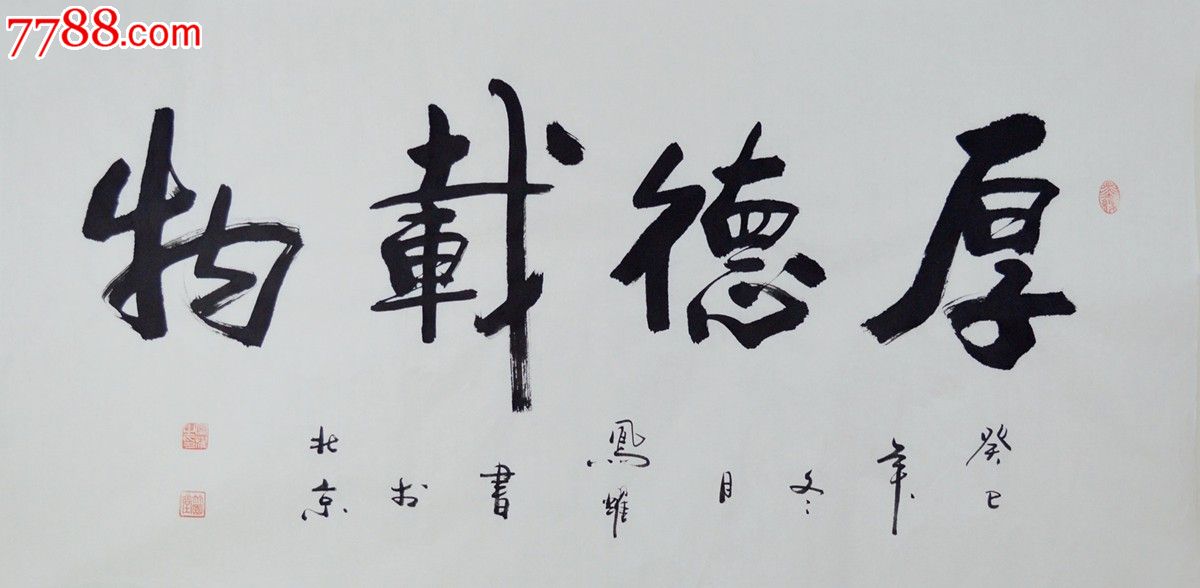 7788.com
厚德載物
癸巳年冬月鳳耀書於北京